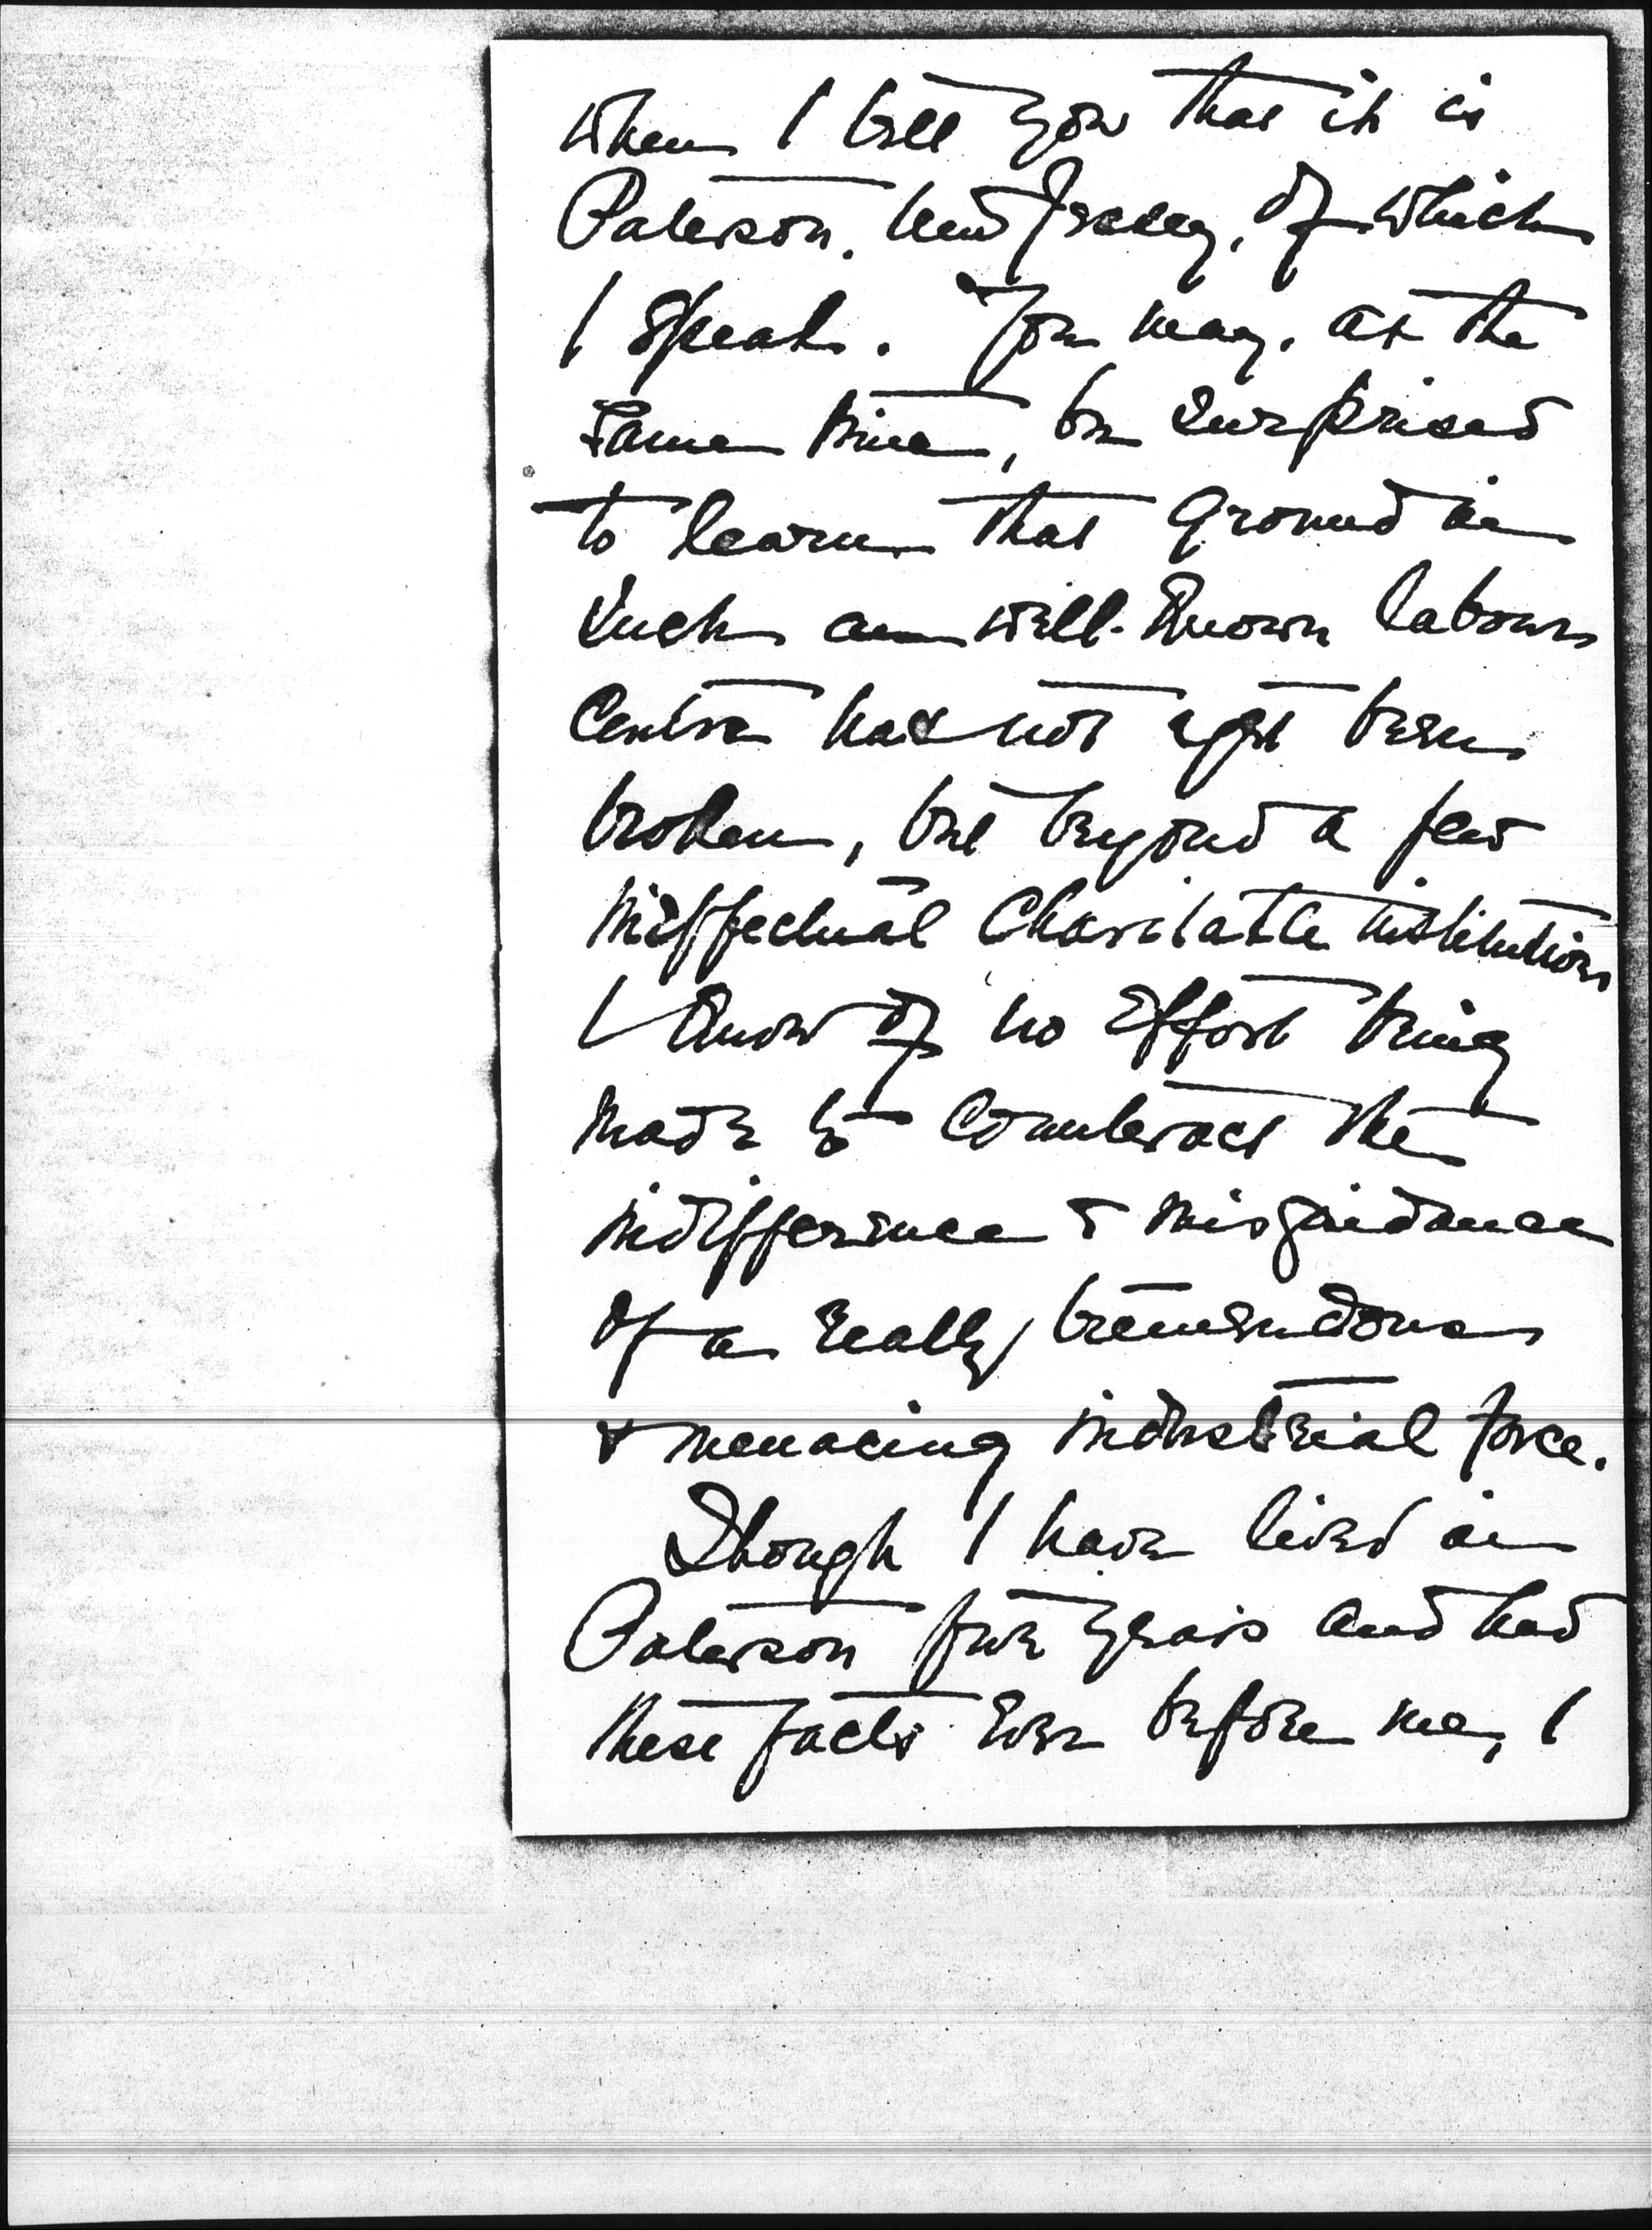 when I tell you that it is
Paterson, New Jersey, of which
I speak. You may, at the
same time, be surprised
to learn that ground in
such a well-known labour
centre has not yet been
broken, but beyond a few
ineffectual charitable institutions
I know of no effort being
made to counteract the
indifference & misguidance
of a really tremendous
& menacing industrial force.
Though I have lived in
Paterson five years and had
these facts ever before me, I